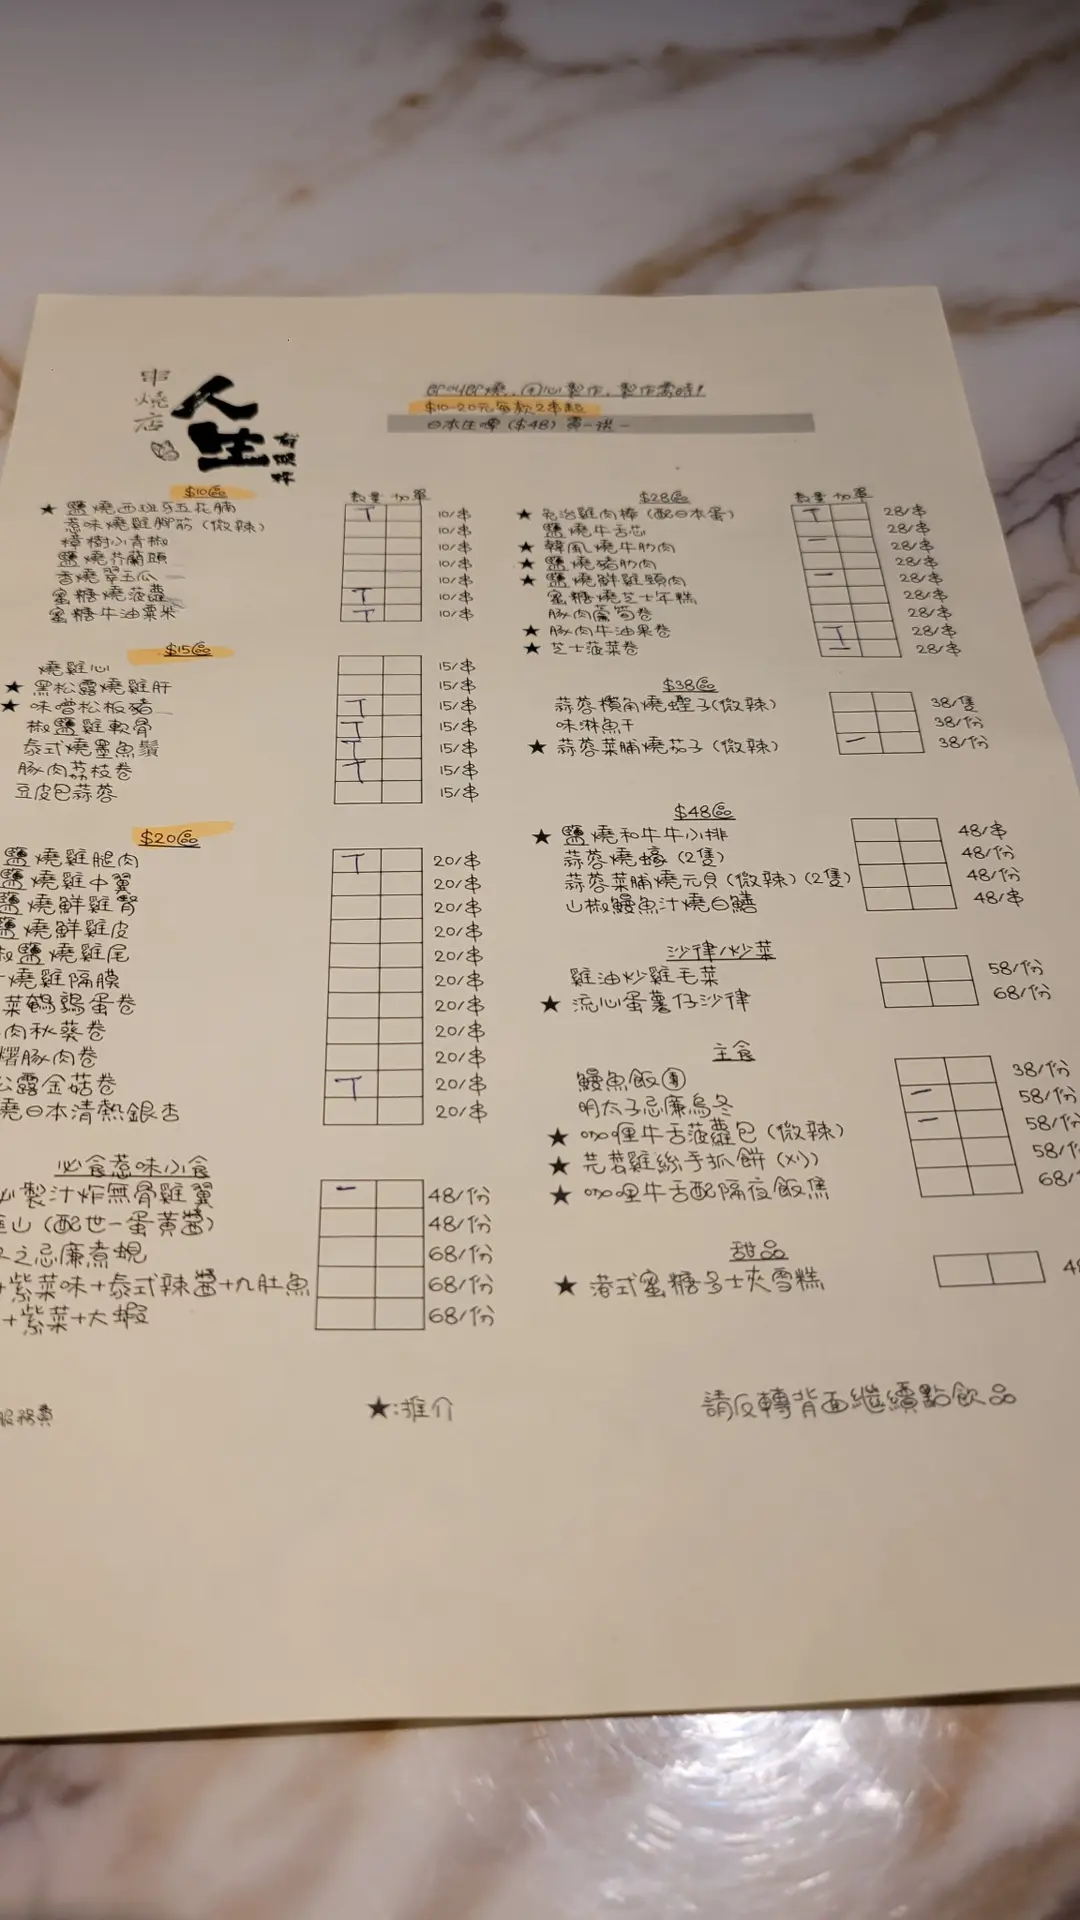 串燒店
人生
有限杯
即叫即燒,用心製作,製作需時!
$10-20元每款2串起
日本生啤($48)買一送一
$10區
數量 加單
★ 鹽燒西班牙五花腩 T 10/串
惹味燒雞腳筋(微辣) 10/串
樟樹小青椒 10/串
鹽燒芥蘭頭 10/串
香燒翠玉瓜 10/串
蜜糖燒菠蘿 T 10/串
蜜糖牛油粟米 T 10/串
$15區
燒雞心 15/串
★ 黑松露燒雞肝 15/串
★ 味噌松板豬 T 15/串
椒鹽雞軟骨 T 15/串
泰式燒墨魚鬚 T 15/串
豚肉荔枝卷 T 15/串
豆皮包蒜蓉 15/串
$20區
鹽燒雞腿肉 T 20/串
鹽燒雞中翼 20/串
鹽燒鮮雞腎 20/串
鹽燒鮮雞皮 20/串
椒鹽燒雞尾 20/串
燒雞隔膜 20/串
菜鵪鶉蛋卷 20/串
肉秋葵卷 20/串
豚肉卷 20/串
露金菇卷 T 20/串
燒日本清熱銀杏 20/串
必食惹味小食
製汁炸無骨雞翼 一 48/份
山(配世一蛋黃醬) 48/份
之忌廉煮蜆 68/份
+紫菜味+泰式辣醬+九肚魚 68/份
+紫菜+大蝦 68/份
$28區
數量 加單
★ 免治雞肉棒(配日本蛋) T 28/串
鹽燒牛舌芯 28/串
★ 韓風燒牛肋肉 一 28/串
★ 鹽燒豬肋肉 28/串
★ 鹽燒鮮雞頸肉 一 28/串
蜜糖燒芝士年糕 28/串
豚肉蘆筍卷 28/串
★ 豚肉牛油果卷 28/串
★ 芝士菠菜卷 一 28/串
$38區
蒜蓉欖角燒蟶子(微辣) 38/隻
味淋魚干 38/份
★ 蒜蓉菜脯燒茄子(微辣) 一 38/份
$48區
★ 鹽燒和牛牛小排 48/串
蒜蓉燒蠔(2隻) 48/份
蒜蓉菜脯燒元貝(微辣)(2隻) 48/份
山椒鰻魚汁燒白鱔 48/串
沙律/炒菜
雞油炒雞毛菜 58/份
★ 流心蛋薯仔沙律 68/份
主食
鰻魚飯團 38/份
明太子忌廉烏冬 一 58/份
★ 咖喱牛舌菠蘿包(微辣) 一 58/份
★ 芫荽雞絲手抓餅(凍) 58/
★ 咖喱牛舌配隔夜飯焦 68/
甜品
★ 港式蜜糖多士夾雪糕 48
服務費
★:推介
請反轉背面繼續點飲品